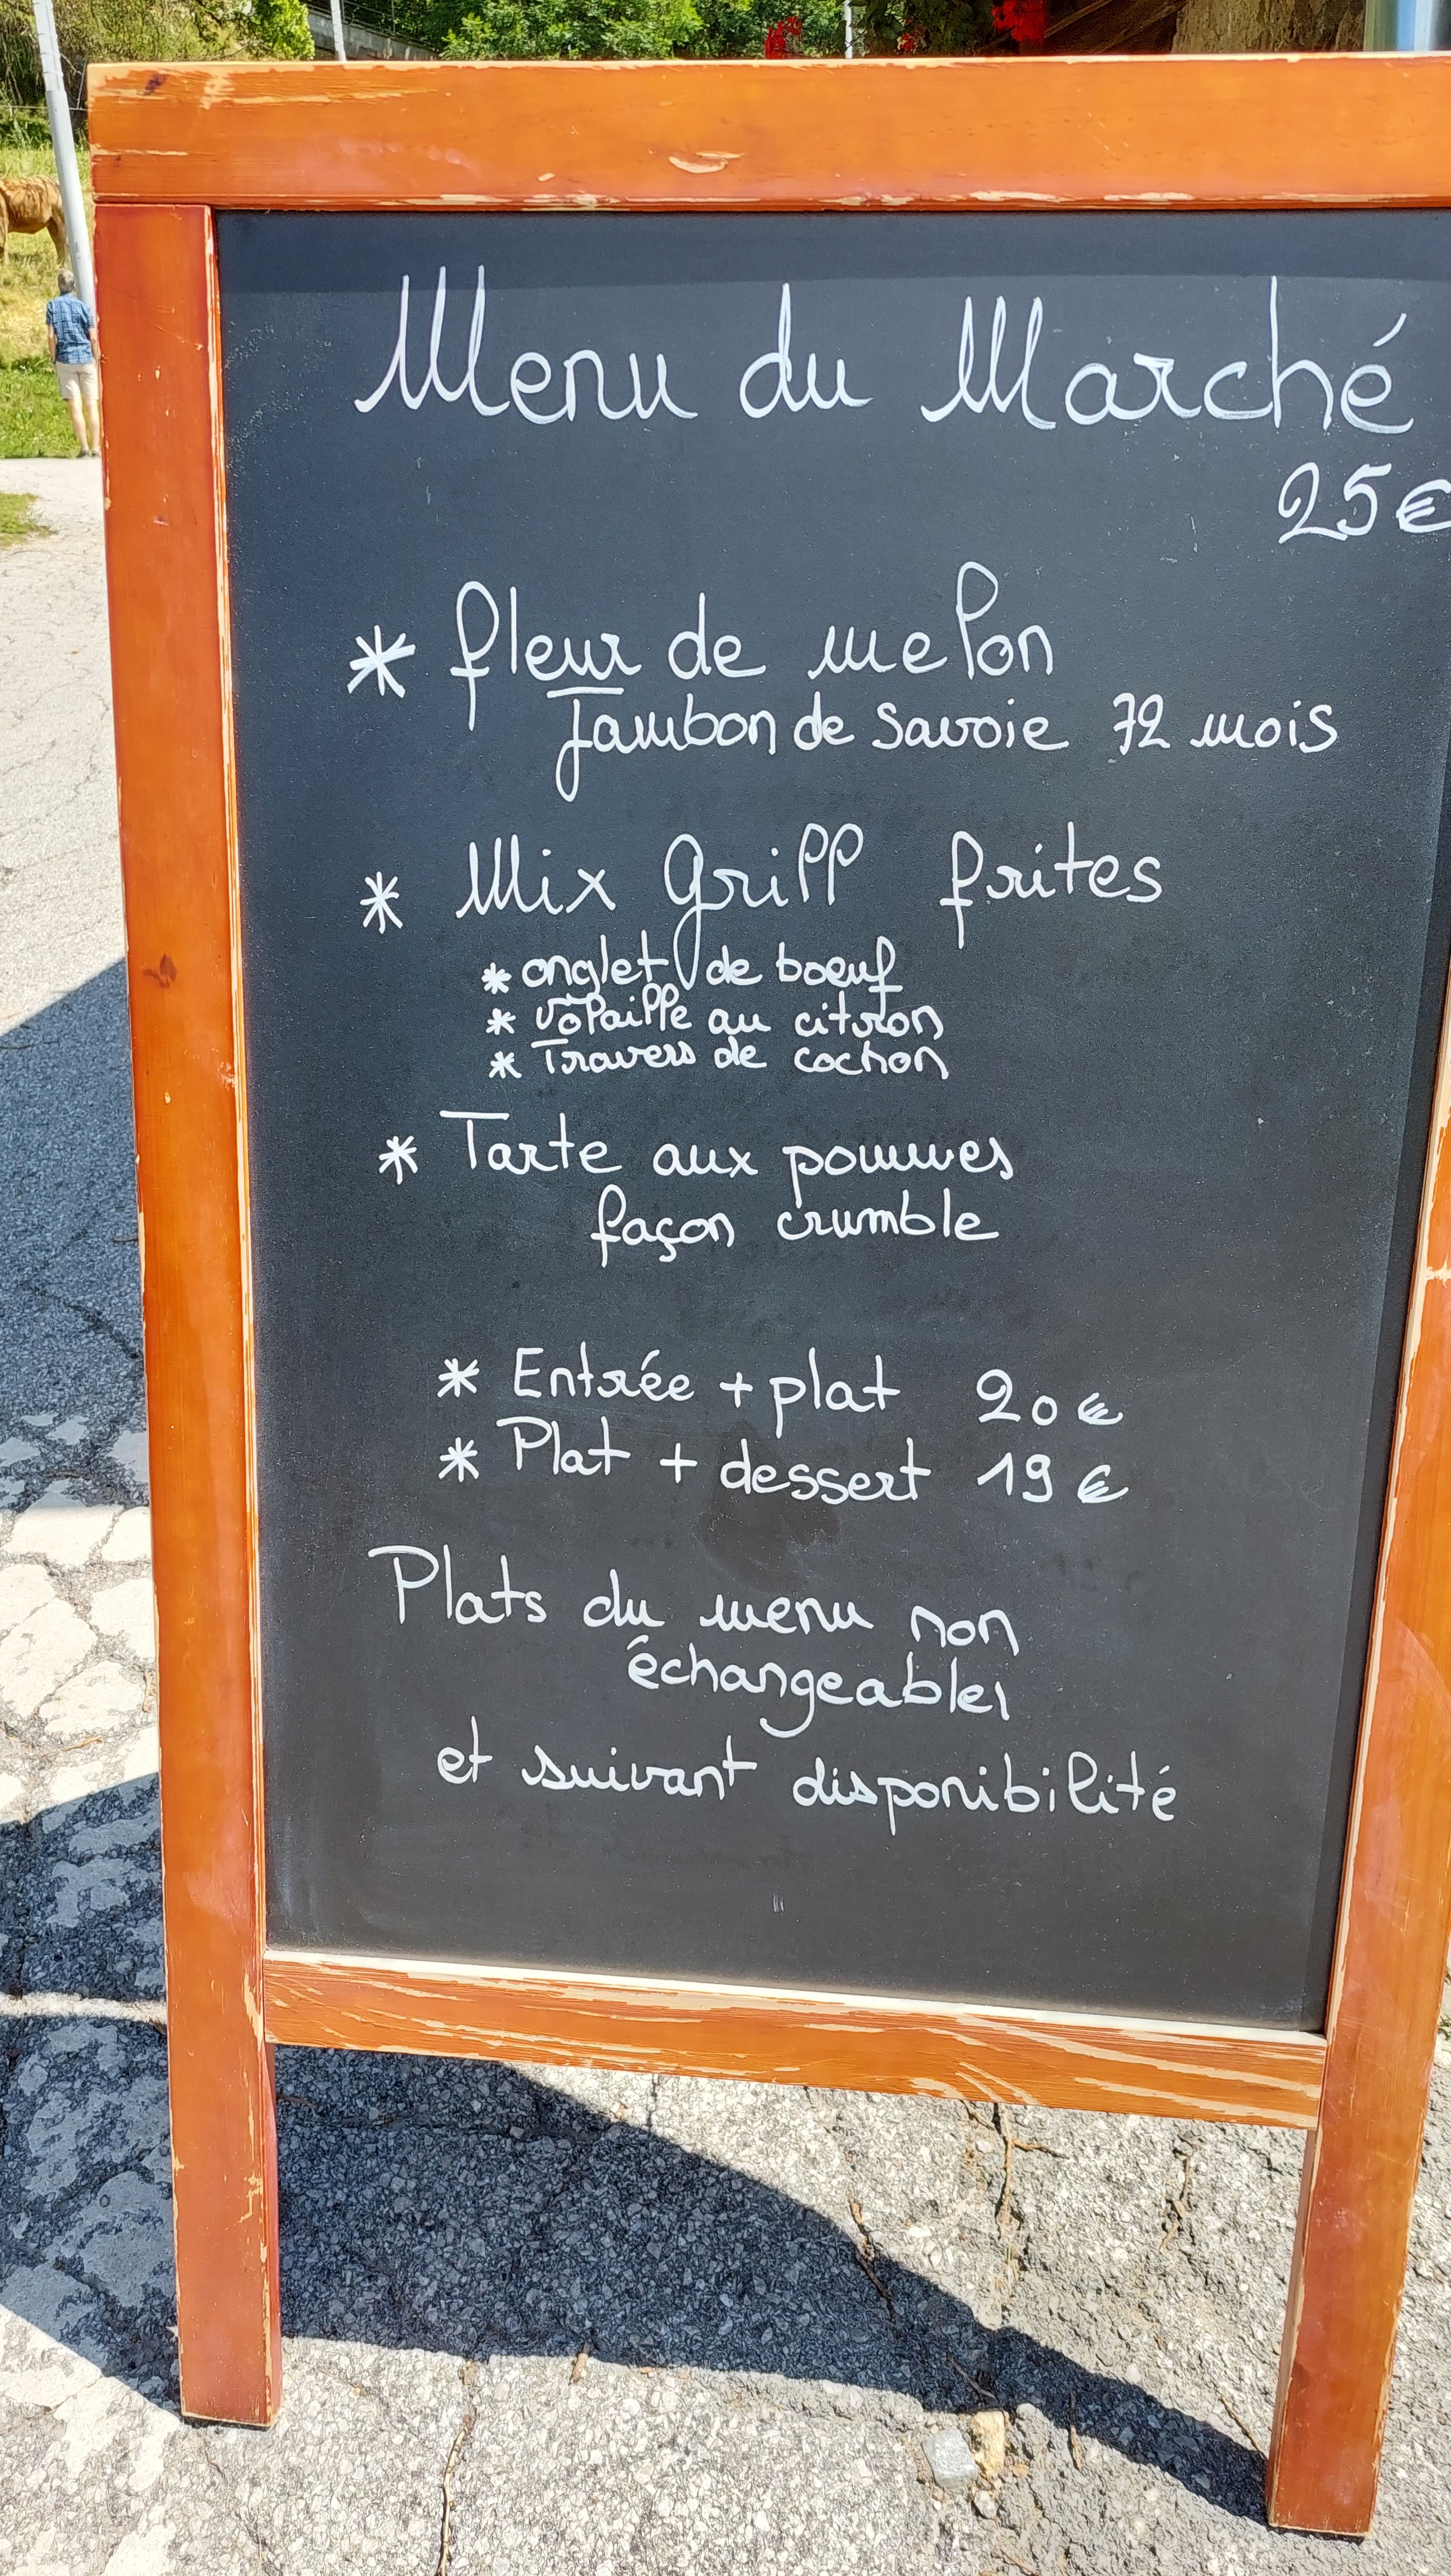 Menu du Marché
25€
* fleur de melon
Jambon de Savoie 72 mois
* Mix Grill frites
* onglet de boeuf
* volaille au citron
* Travers de cochon
* Tarte aux pommes
façon crumble
* Entrée + plat 20 €
* Plat + dessert 19 €
Plats du menu non
échangeables
et suivant disponibilité